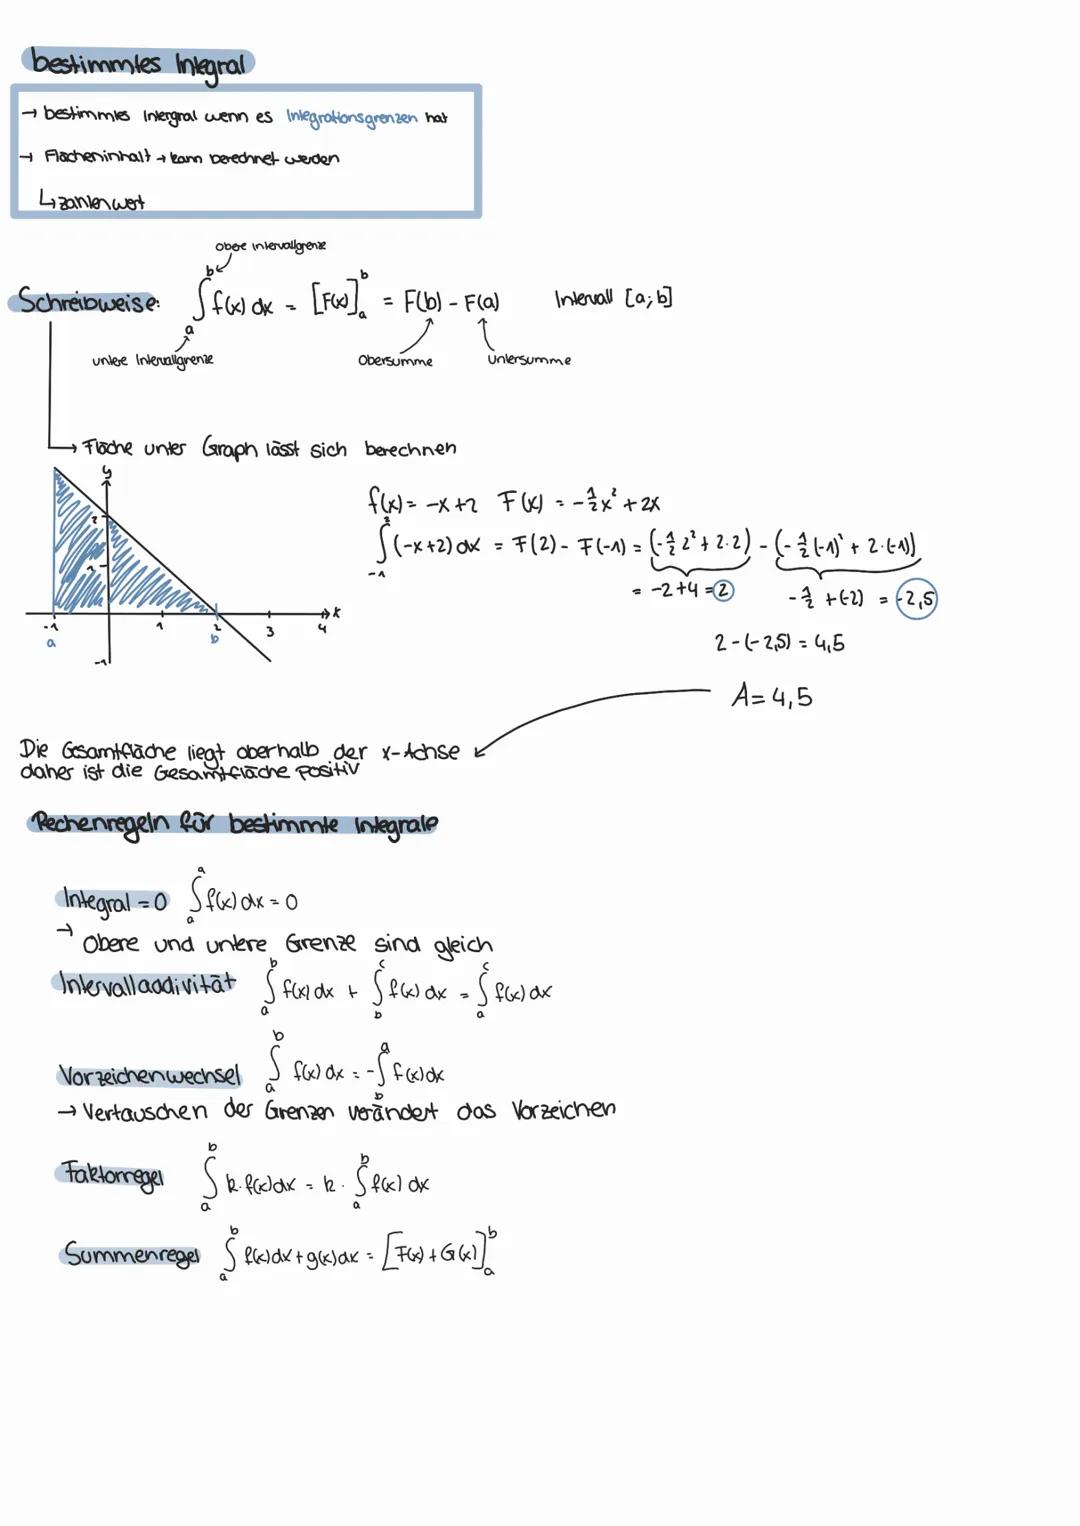 bestimmtes Integral
→ bestimmtes Intergral wenn es Integrationsgrenzen hat
→ Flächeninhalt → kann berechnet werden
↳ zahlenwert
obere Intervallgrenze
Schreibweise: ∫_a^b f(x) dx = [F(x)]_a^b = F(b) - F(a) Intervall [a; b]
untere Intervallgrenze Obersumme Untersumme
→ Fläche unter Graph lässt sich berechnen
y
2
1
-1 1 2 3 4 x
a b
-1
f(x) = -x+2 F(x) = -1/2x² + 2x
∫_-1^2 (-x+2) dx = F(2) - F(-1) = (-1/2 2² + 2·2) - (-1/2 (-1)² + 2·(-1))
= -2+4 = 2 -1/2 + (-2) = -2,5
2 - (-2,5) = 4,5
A = 4,5
Die Gesamtfläche liegt oberhalb der x-Achse
daher ist die Gesamtfläche positiv
Rechenregeln für bestimmte Integrale
Integral = 0 ∫_a^a f(x) dx = 0
→ Obere und untere Grenze sind gleich
Intervalladdivität ∫_a^b f(x) dx + ∫_b^c f(x) dx = ∫_a^c f(x) dx
Vorzeichenwechsel ∫_a^b f(x) dx = -∫_b^a f(x) dx
→ Vertauschen der Grenzen verändert das Vorzeichen
Faktorregel ∫_a^b k·f(x) dx = k · ∫_a^b f(x) dx
Summenregel ∫_a^b f(x) dx + g(x) dx = [F(x) + G(x)]_a^b